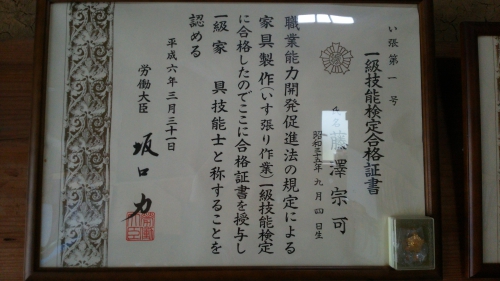 い張第一号
一級技能検定合格証書
氏名 藤澤宗可
昭和三十五年九月四日生
職業能力開発促進法の規定による
家具製作（いす張り作業）一級技能検定
に合格したのでここに合格証書を授与し
一級家具技能士と称することを
認める
平成六年三月三十一日
労働大臣
坂口力